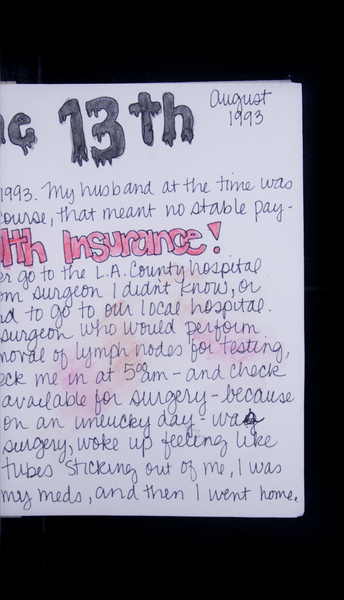 13th
August
1993
1993. My husband at the time was
course, that meant no stable pay-
lth Insurance!
er go to the L.A. County hospital
om surgeon I didn't know, or
nd to go to our local hospital.
surgeon who would perform
moval of lymph nodes for testing,
eck me in at 5:00am - and check
available for surgery - because
on an unlucky day - was
surgery, woke up feeling like
tubes sticking out of me, I was
my meds, and then I went home.